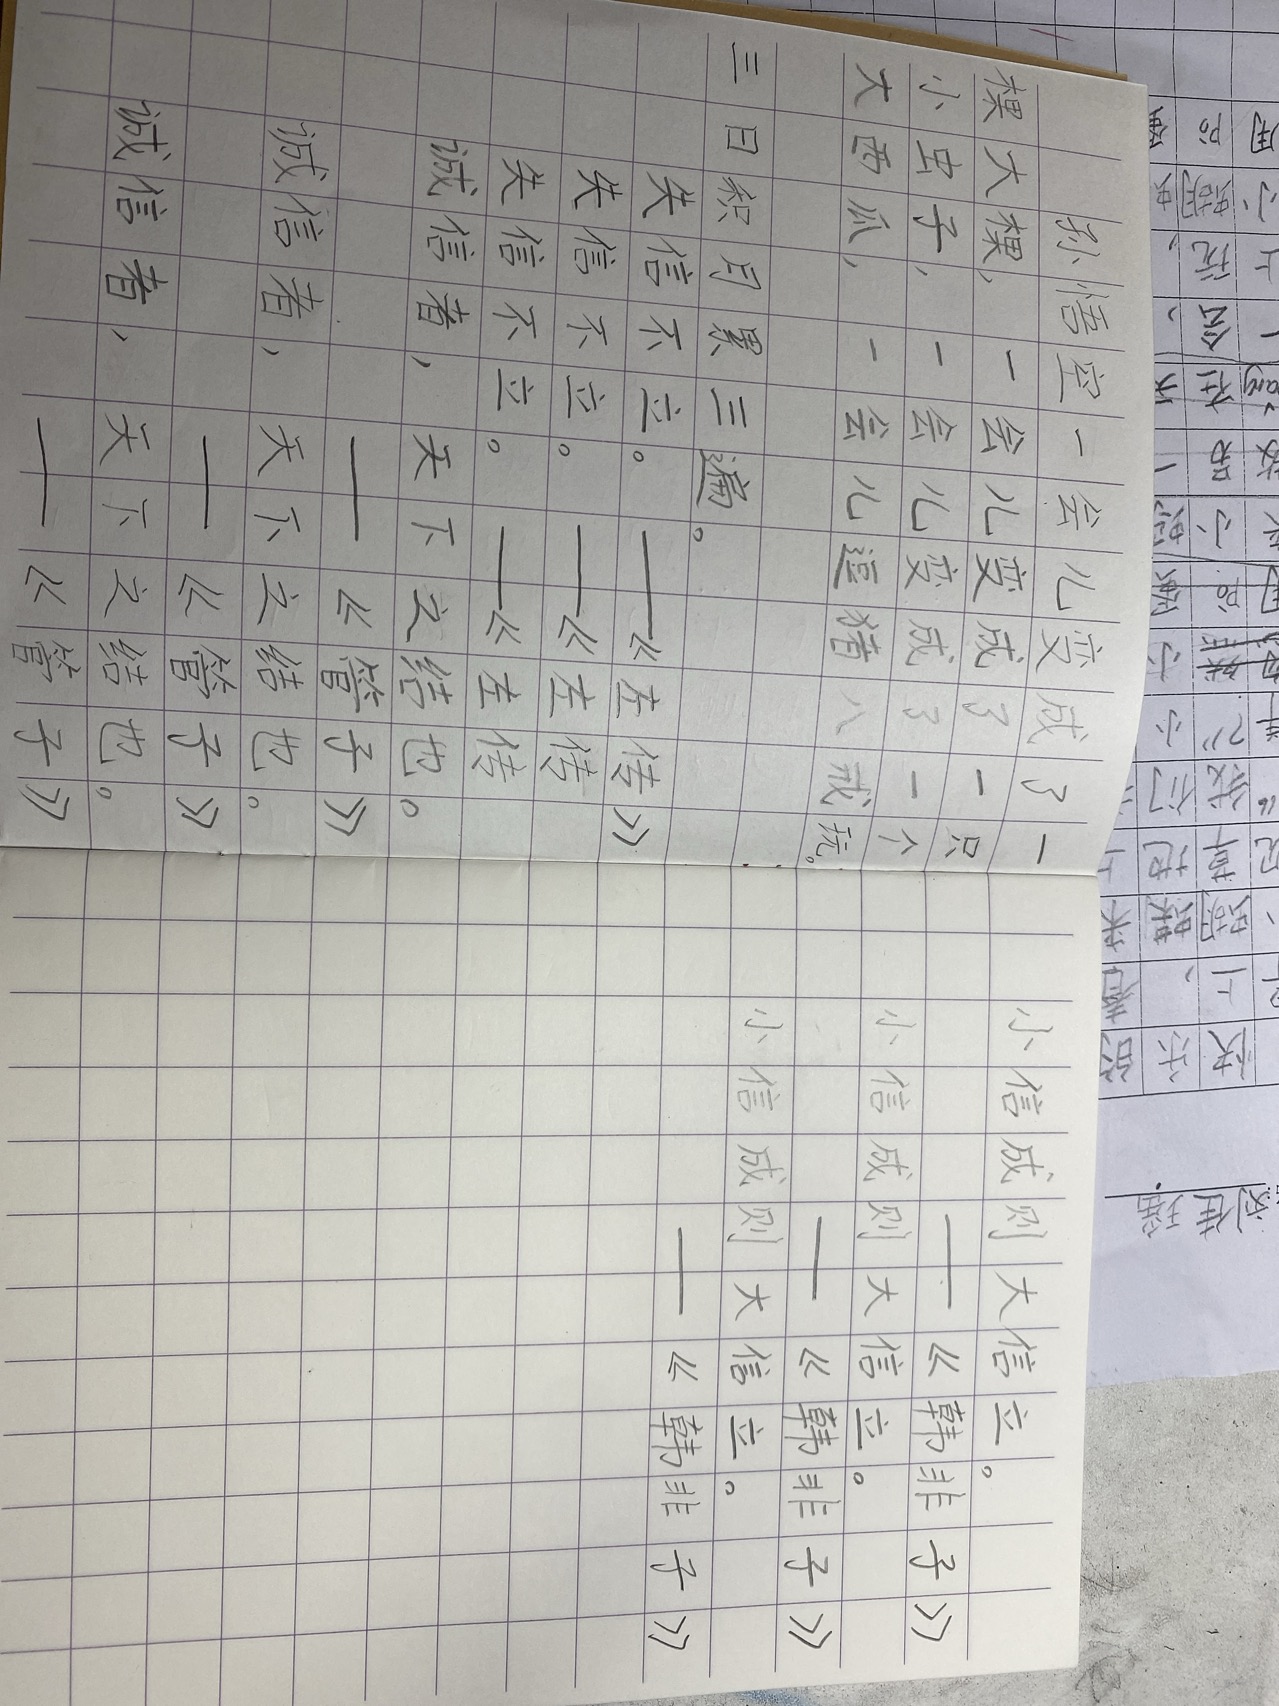 孙悟空一会儿变成了一
棵大棵，一会儿变成了一只
小虫子，一会儿变成了一个
大西瓜，一会儿逗猪八戒玩。
三日织月累三遍。
失信不立。——《左传》
失信不立。——《左传
失信不立。——《左传
诚信者，天下之结也。
——《管子》
诚信者，天下之结也。
——《管子》
诚信者，天下之结也。
——《管子》
小信成则大信立。
——《韩非子》
小信成则大信立。
——《韩非子》
小信成则大信立。
——《韩非子》